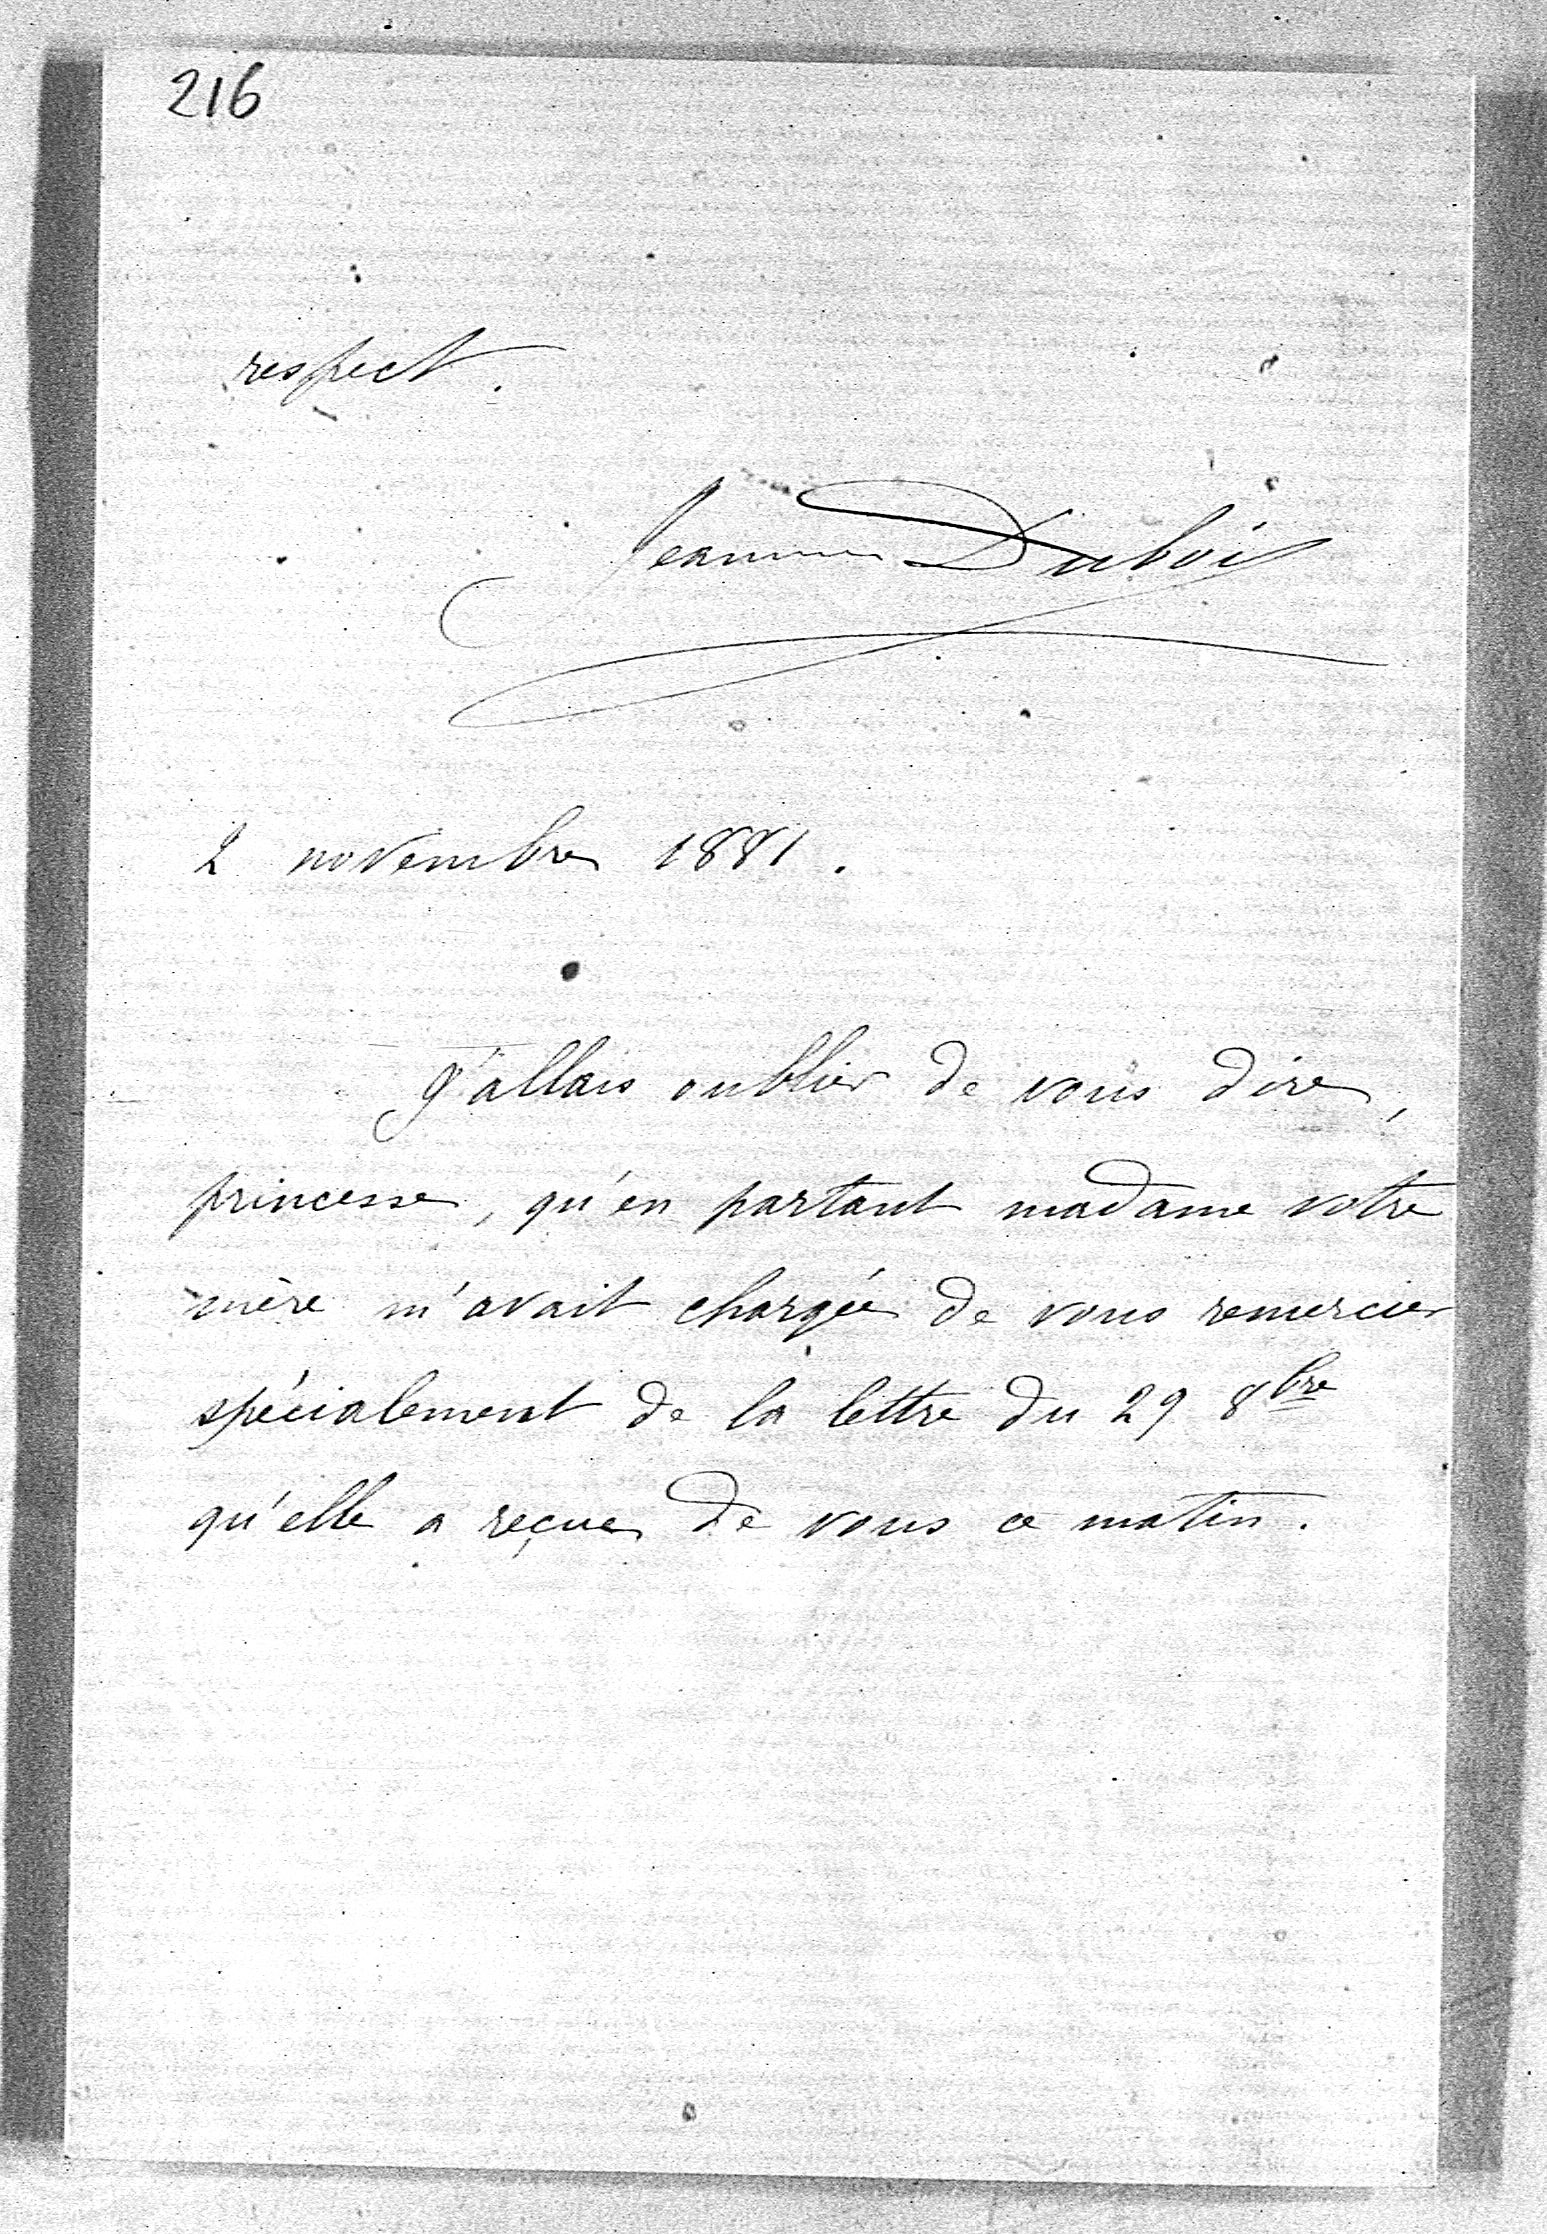 216
respect.
Jeanne Dubois
2 novembre 1881.
J'allais oublier de vous dire,
princesse, qu'en partant madame votre
mère m'avait chargée de vous remercier
spécialement de la lettre du 29 8bre
qu'elle a reçue de vous ce matin.